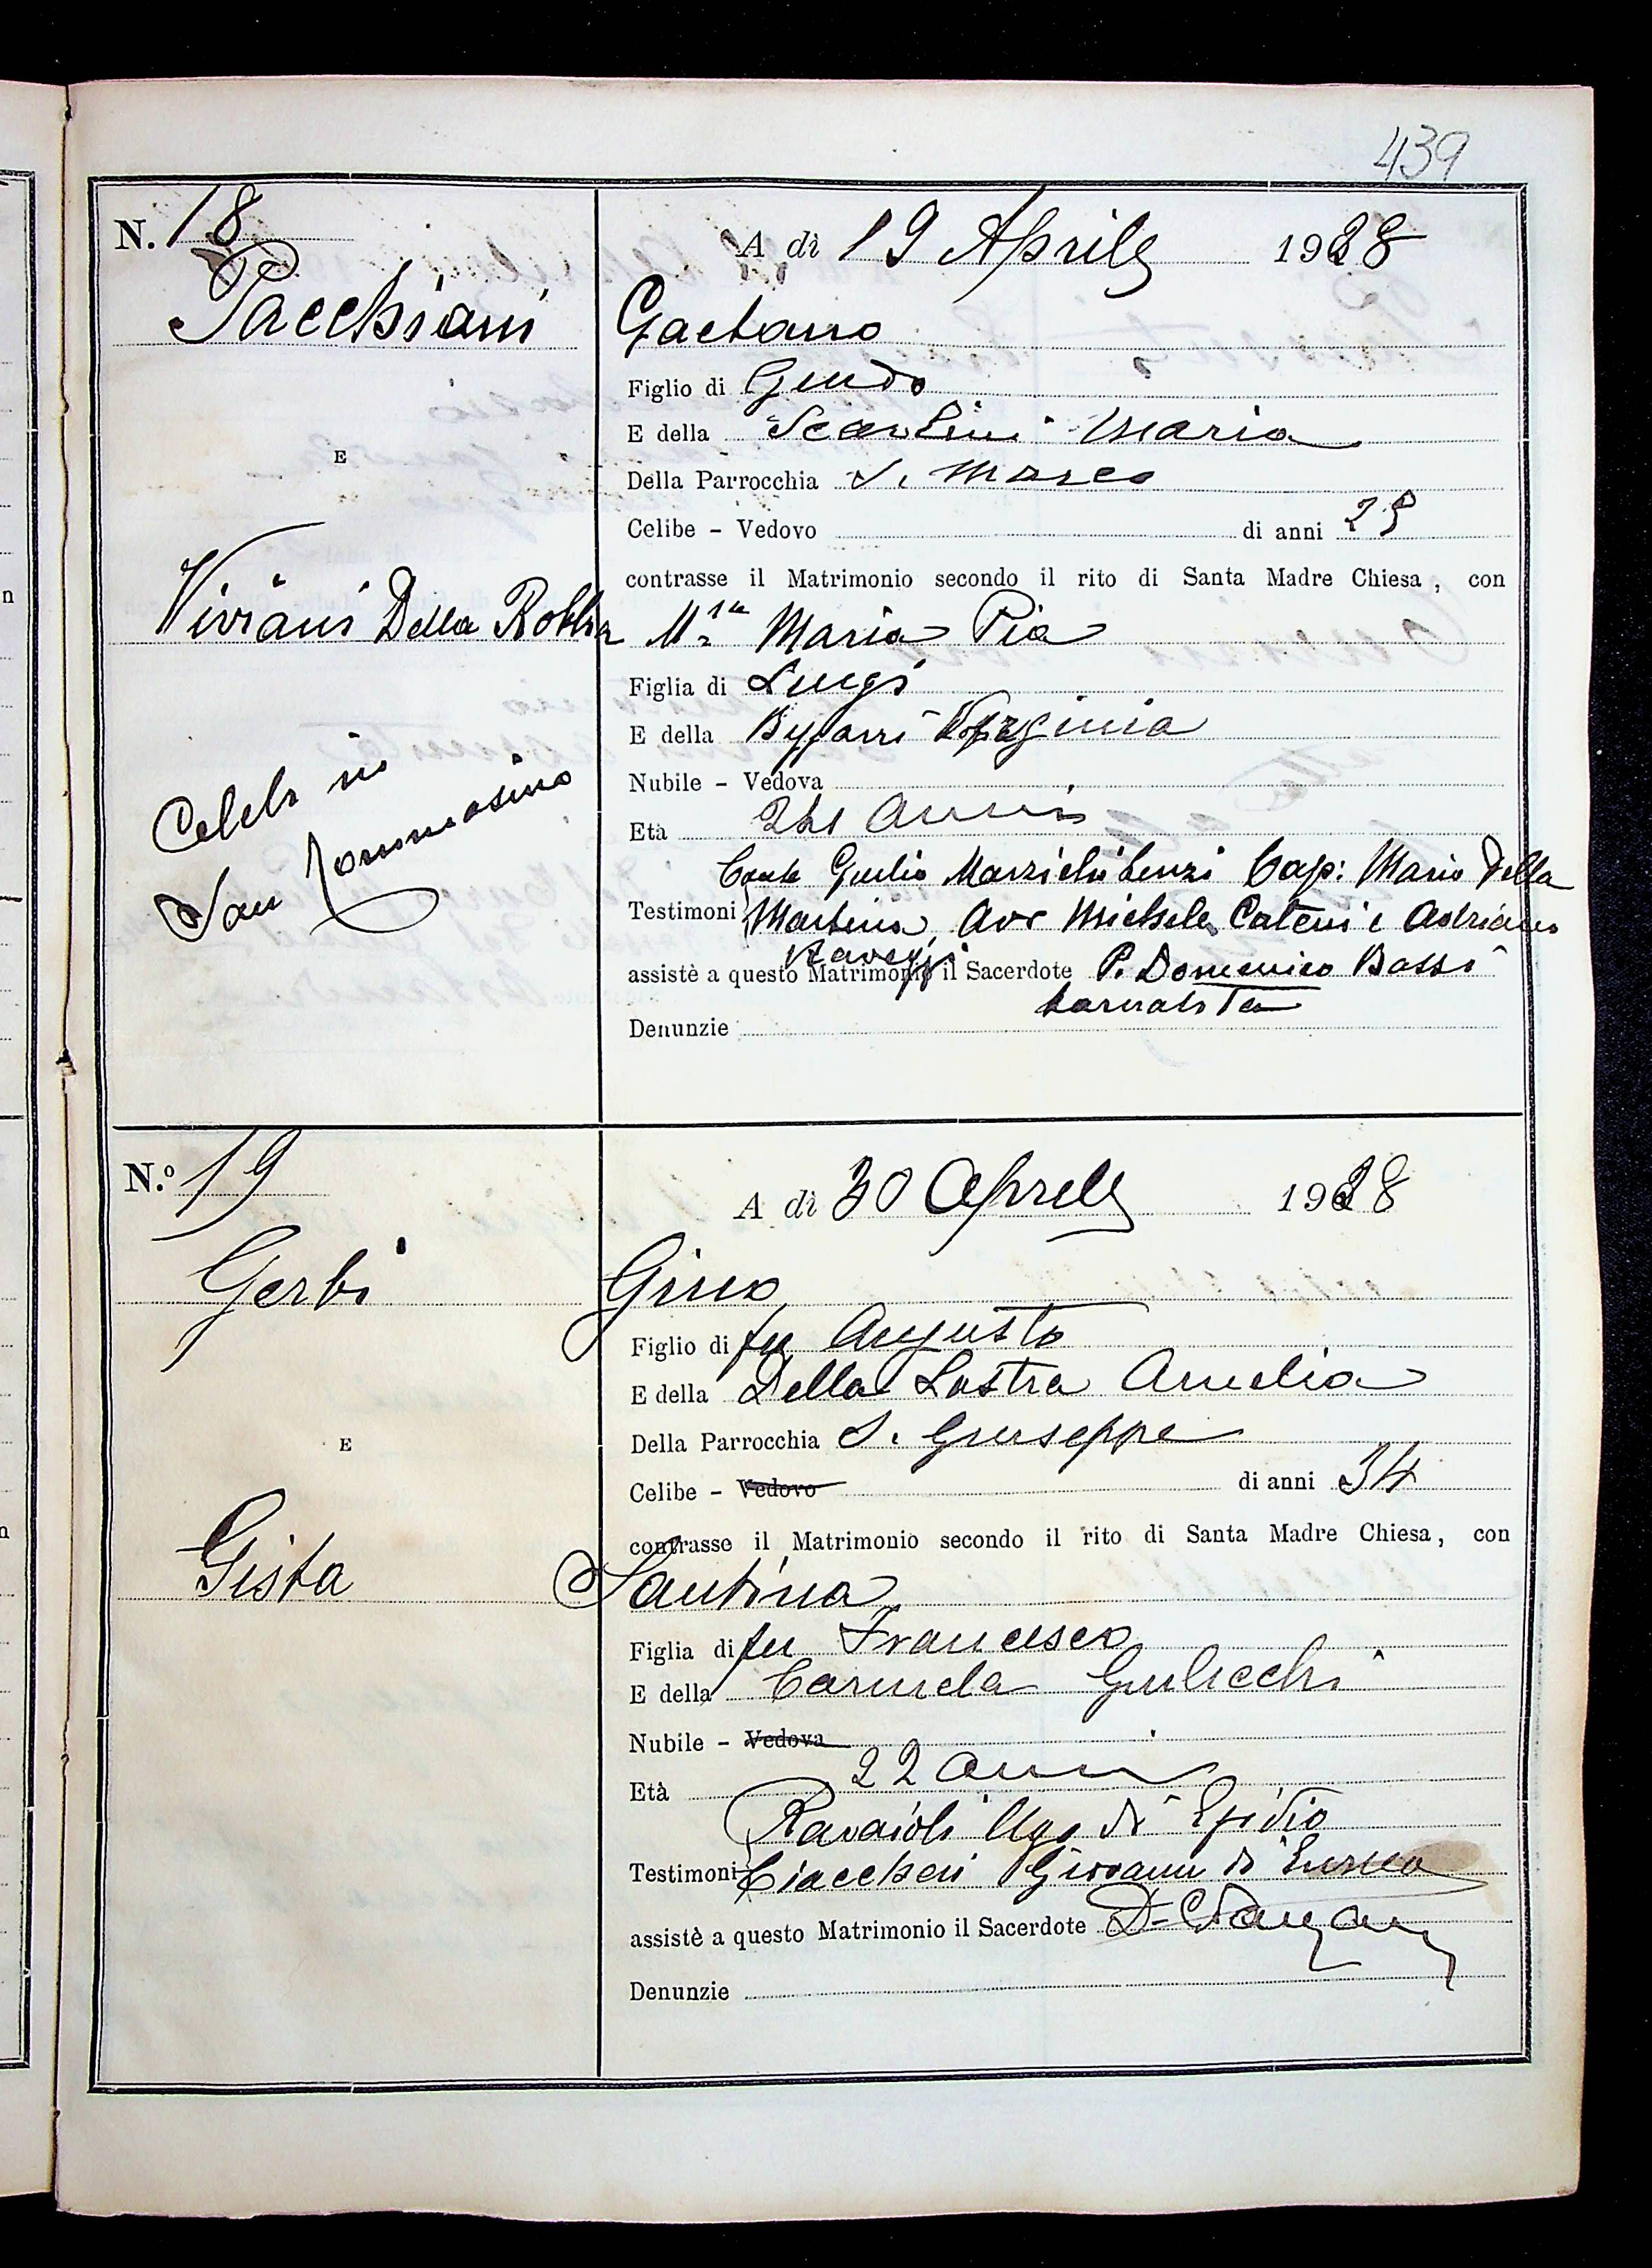 439
N. 18
A dì 19 Aprile 1928
Pacchiani
Gaetano
Figlio di Guido
E della Scarlini Maria
E
Della Parrocchia S. Marco
Celibe - Vedovo di anni
contrasse il Matrimonio secondo il rito di Santa Madre Chiesa, con
Viviani Della Robbia
Maria Pia
Figlia di Luigi
E della Virginia
Nubile - Vedova
Celebr in
San Tommasino
Età 21 anni
Conte Giulio Marzichi Lenzi Cap: Mario Della
Testimoni Martina, Avv Michele Cateni e Adriano
Raveggi
assistè a questo Matrimonio il Sacerdote P. Domenico Bassi
barnabita
Denunzie
N.º 19
A dì 30 Aprile 1928
Gerbi
Gino
Figlio di fu Augusto
E della Della Lastra Amelia
Della Parrocchia S. Giuseppe
E
Celibe - Vedovo di anni 34
contrasse il Matrimonio secondo il rito di Santa Madre Chiesa, con
Gista
Santina
Figlia di fu Francesco
E della Carmela Gulicchi
Nubile - Vedova
Età 22 anni
Ravaioli Ugo di Egidio
Testimoni Ciaccheri Giovanni di
assistè a questo Matrimonio il Sacerdote
Denunzie